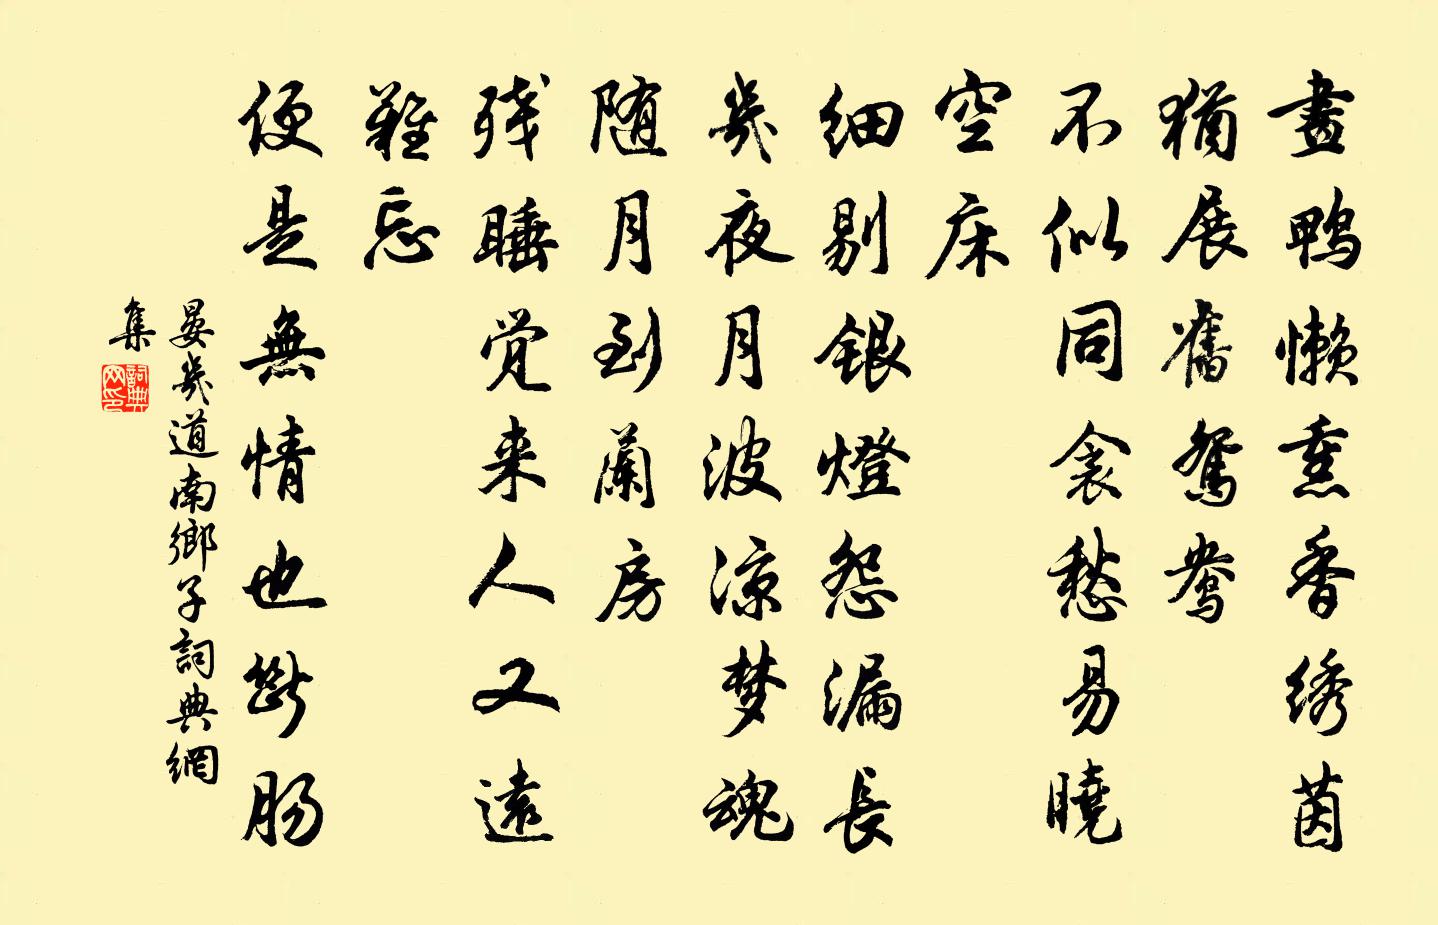 畫鴨懶熏香绣茵
猶展舊鴛鴦
不似同衾愁易曉
空床
细剔銀燈怨漏長
幾夜月波涼梦魂
随月到蘭房
残睡觉来人又遠
難忘
便是無情也斷肠
晏幾道南鄉子詞典網
集
詞典
网印